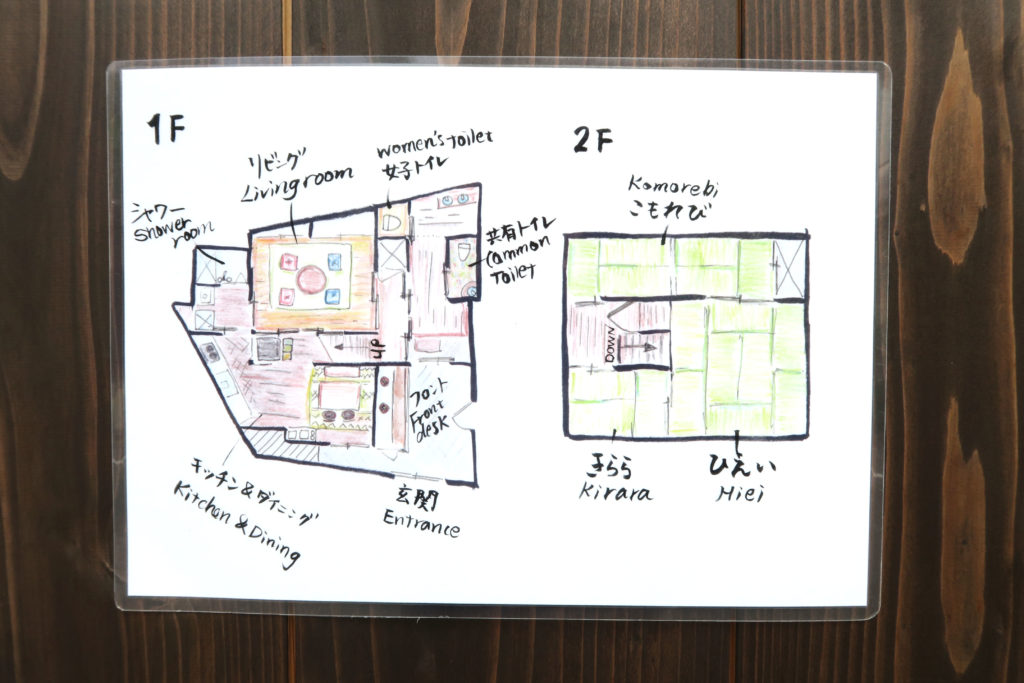 1F
リビング
Living room
women's toilet
女子トイレ
シャワー
Shower
room
共有トイレ
Common
Toilet
UP
フロント
Front
desk
キッチン&ダイニング
Kitchen & Dining
玄関
Entrance
2F
Komorebi
こもれび
DOWN
きらら
Kirara
ひえい
Hiei